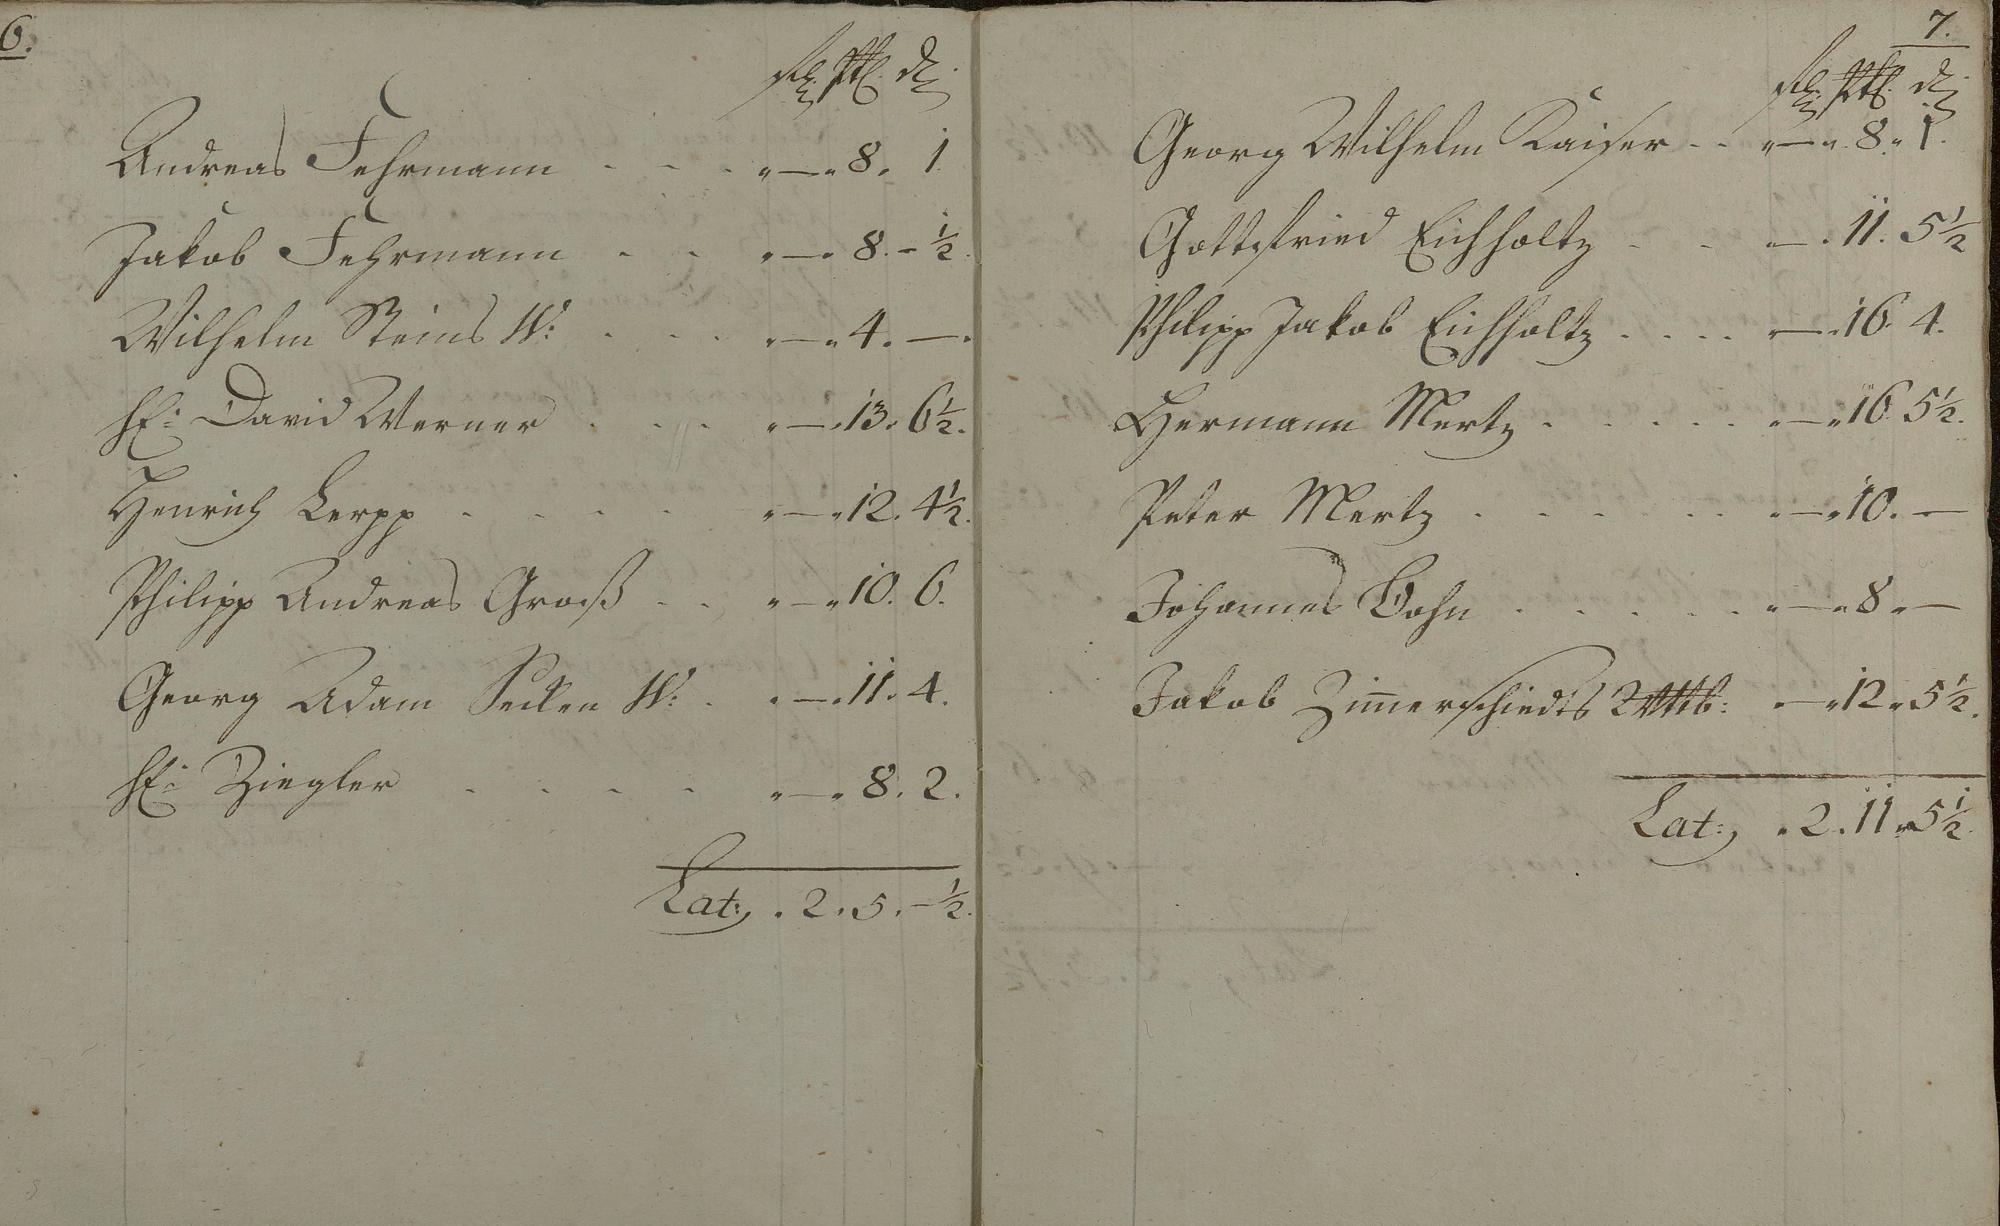 6.
Andreas Fehrmann - - - " — " 8. 1.
Jakob Fehrmann - - " — " 8. - ½.
Wilhelm Steins W: - - - " — " 4. — .
H: David Werner - - - " — . 13. 6½.
Henrich Lerpp - - - - " — " 12. 4½.
Philipp Andreas Groß - - " — " 10. 6.
Georg Adam W: - " — . 11. 4.
H: Ziegler - - - - " — " 8. 2.
Lat: . 2. 5. - ½.
7.
Georg Wilhelm Kaiser - - " — " 8. 1.
Gottfried Eichholtz - - " — . 11. 5½
Philipp Jakob Eichholtz - - - - " — . 16. 4.
Hermann Mertz - - - - - " — " 16 5½.
Peter Mertz - - - - - - " — " 10. —
Johannes Bohn - - - - - " — " 8. —
Jakob Zim̄erschiedts " — " 12. 5½.
Lat: . 2. 11. 5½.